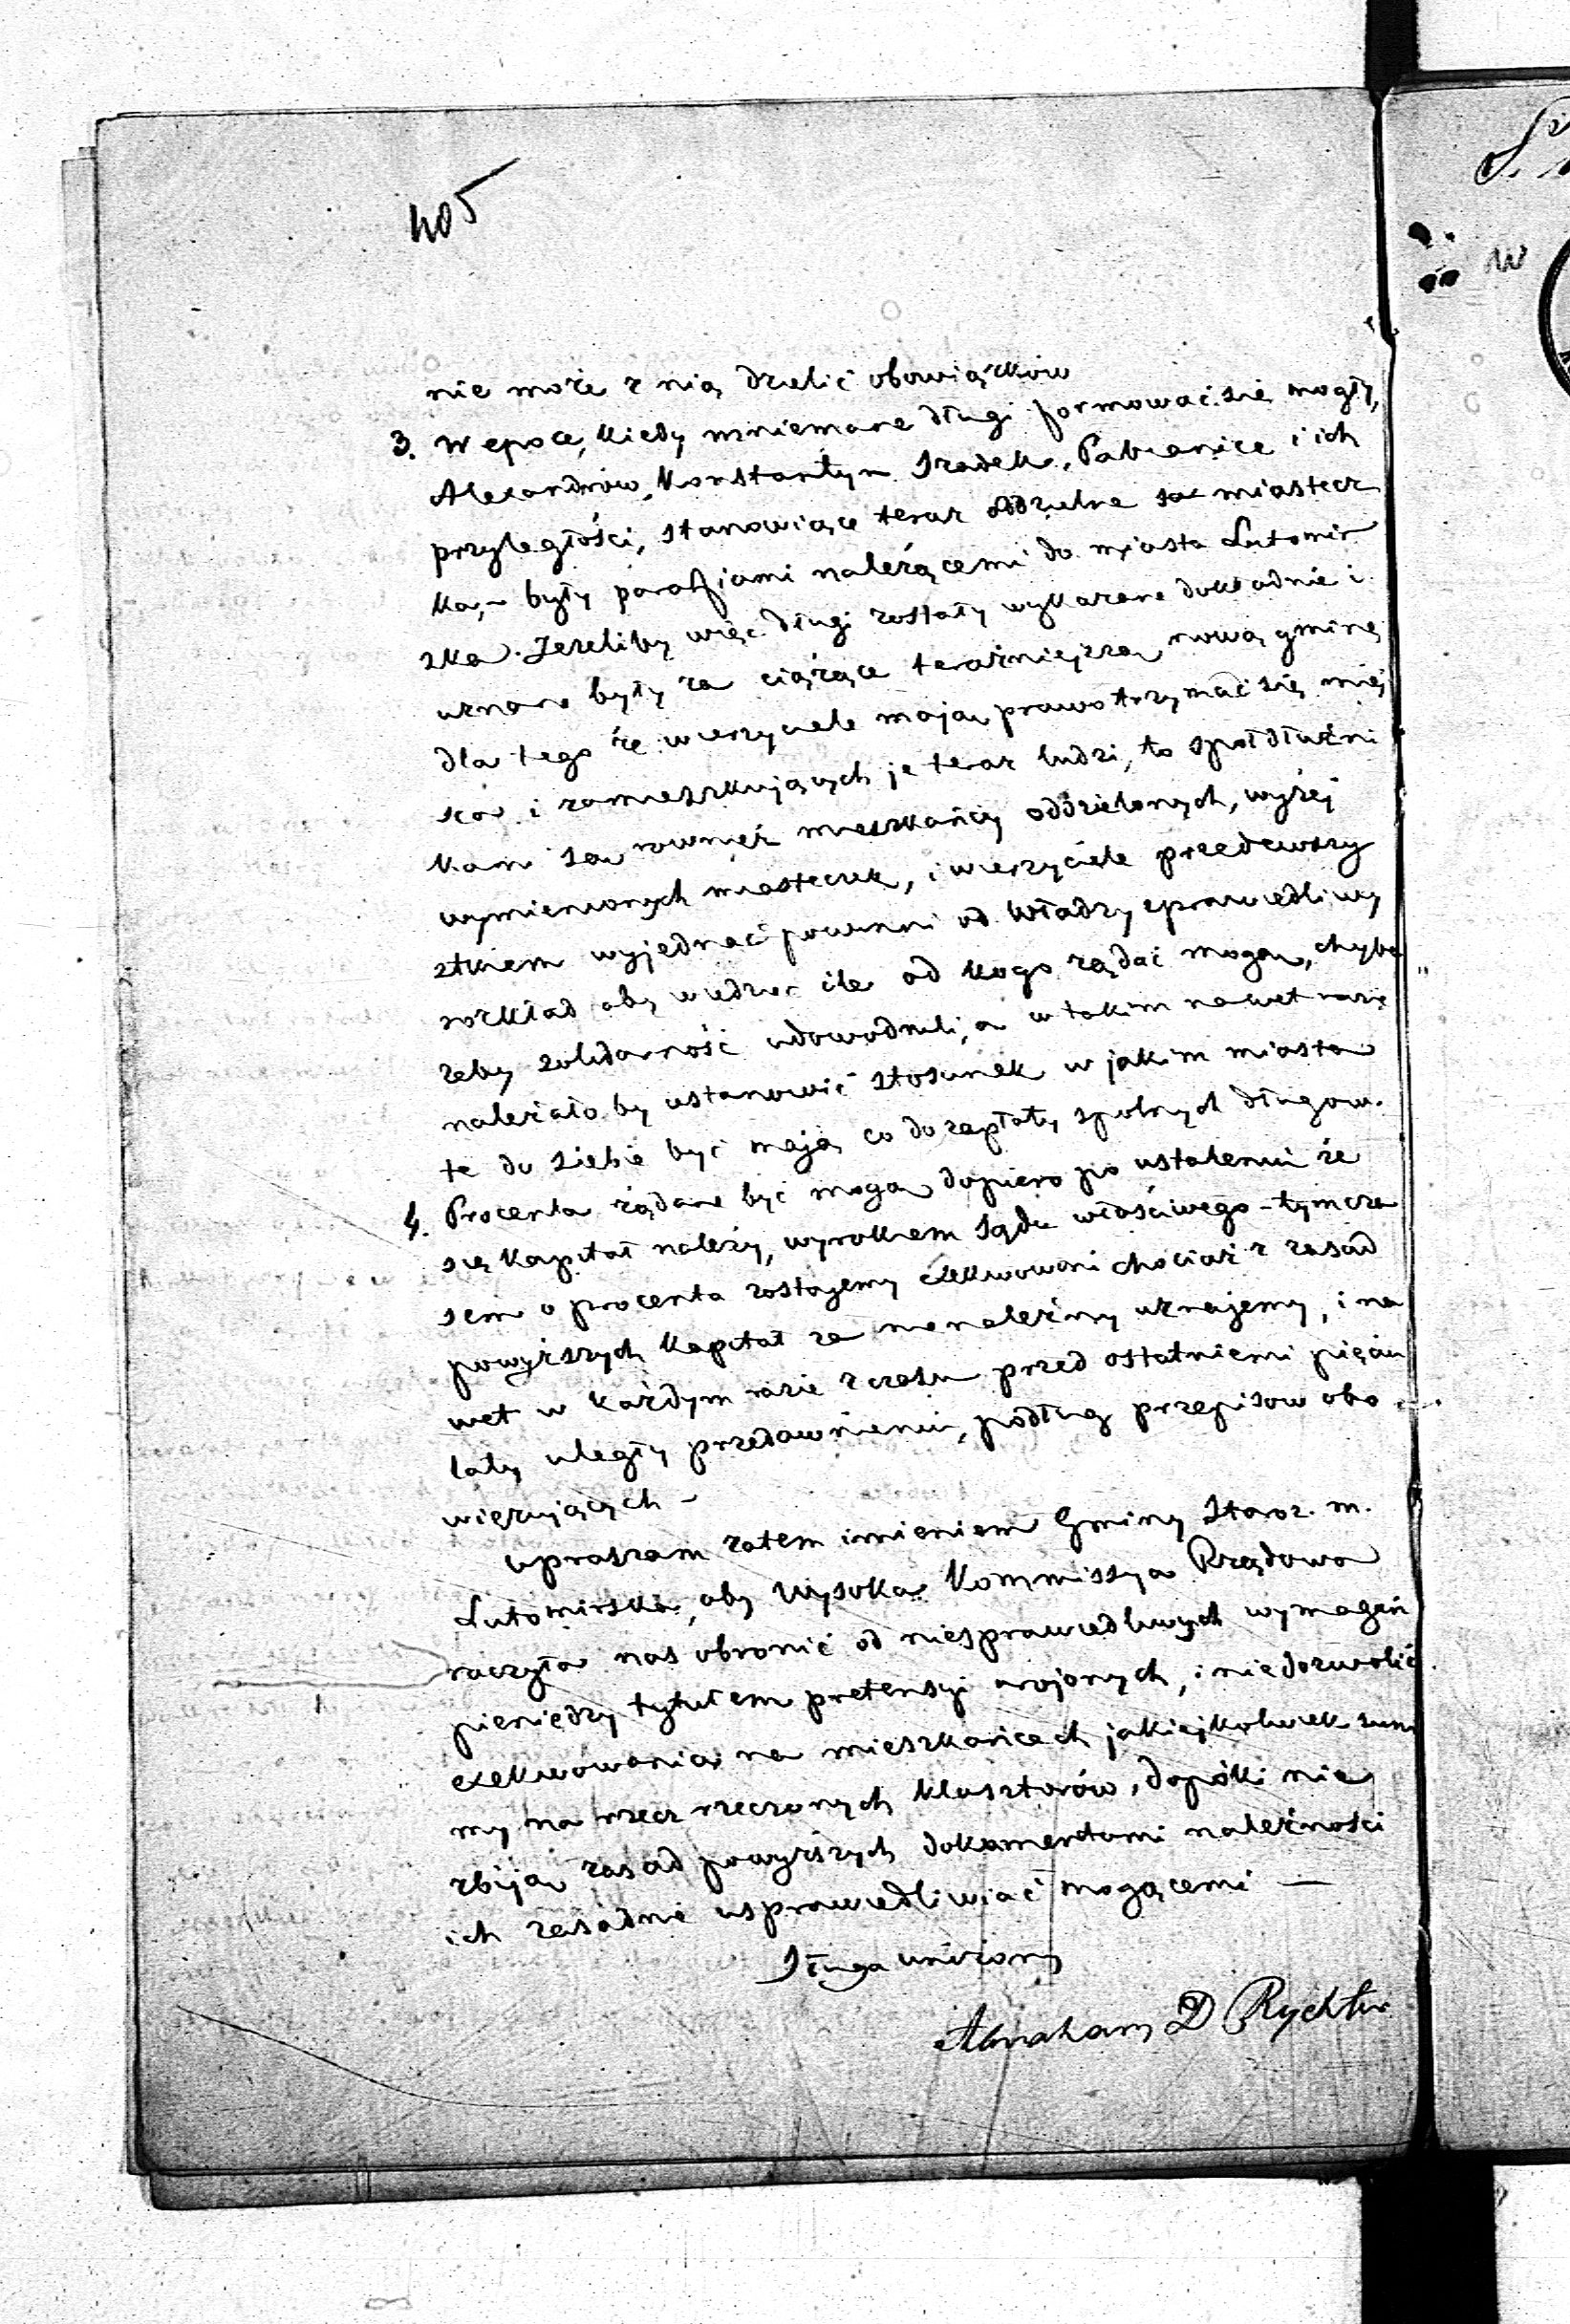 405
nie może z nią dzielić obowiązków
3. W epoce, kiedy mniemane długi formować się mogły,
Alexandrów, Konstantyn Szadek, Pabianice i ich
przyległości, stanowiące teraz oddzielne są miastecz
ka, - były parafjami należącemi do miasta Lutomir
ska. Jezeliby więc długi zostały wykazane dokładnie i
uznane były za ciążące teraźniejszą nową gminę
dla tego że wierzyciele mają prawo trzymać się miej
sca i zamieszkujących je teraz ludzi, to spółdłużni
kami są rownież mieszkańcy oddzielonych, wyżej
wymienionych miasteczek, i wierzyciele przedewszy
stkiem wyjednać powinni od Władzy sprawiedliwy
rozkład aby wiedzieć ile od kogo żądać mogą, chyba
żeby solidarność udowodnili, a w takim nawet razie
należało by ustanowić stosunek w jakim miasta
te do siebie być mają co do zapłaty spolnych długow.
4. Procenta żądane być mogą dopiero po ustaleniu że
się kapitał należy, wyrokiem Sądu właściwego - tymcza
sem o procenta zostajemy exekwowani chociaż z zasad
powyższych kapitał za nienależny uznajemy, i na
wet w każdym razie z czasu przed ostatniemi pięciu
laty uległy przedawnieniu, podług przepisow obo
więzujących -
Upraszam zatem imieniem Gminy Staroz. m.
Lutomirska, aby Wysoka Kommissya Rządowa
raczyła nas obronić od niesprawiedliwych wymagań
pieniędzy tytułem pretensyi urojonych, i niedozwolić
exekwowania na mieszkańcach jakiejkolwiek sum
my na rzecz rzeczonych klasztorów, dopóki nie
zbiją zasad powyższych dokumentami należności
ich zasadnie usprawiedliwiać mogącemi —
Sługa uniżony
Abraham D Rychter